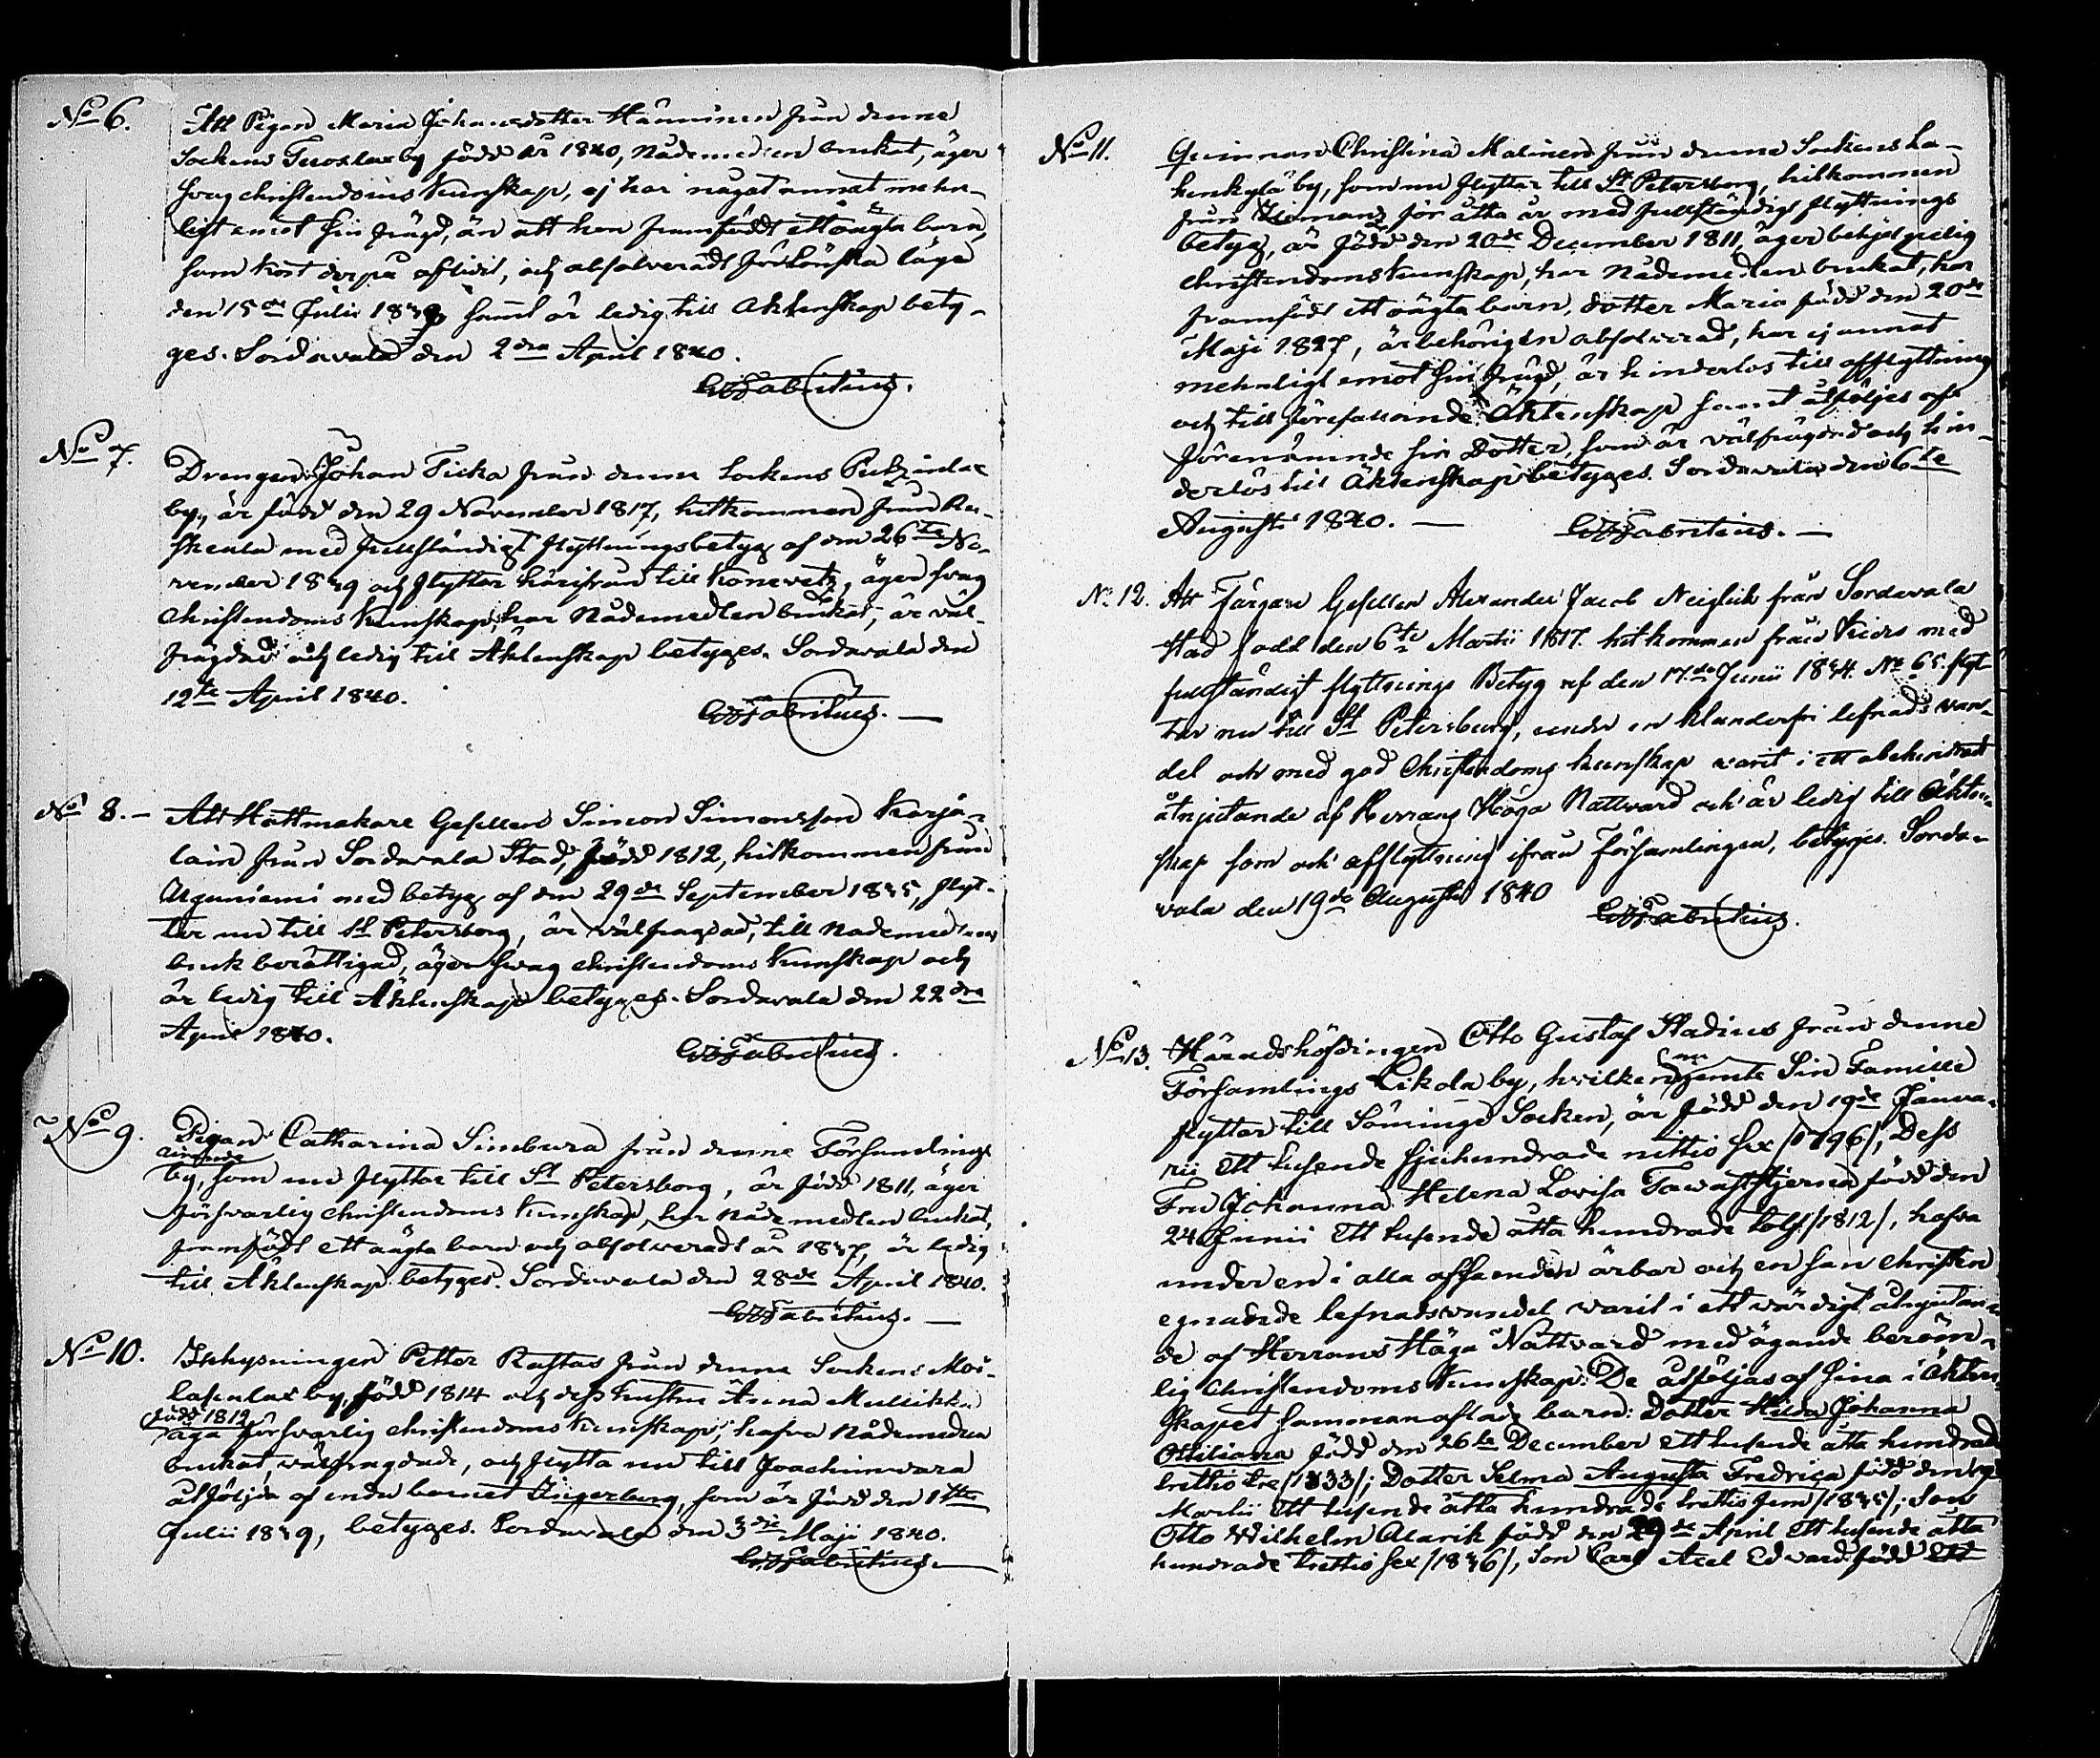 No 6. Att Pigan Maria Johansdotter Hänninen från denne
Sockens Tuoslax by född år 18 0, nådemedlen brukat, äger
svag christendoms kunskap, ej har något annat mehn-
ligt emot sin frägd, än att hon framfödt ett oägta barn,
som kort derpå aflidit, och absolverads
den 15de Julii 183 samt är ledig till Äktenskap bety-
ges. Sordavala den 2dra April 1840.
Fabritius.
No 7. Drengen Johan Ticka från denna Sockens
by, är född den 29 November 1817, hitkommen från Ru-
skeala med fullständigt flyttningsbetyg af den 26te No-
vember 1839 och flyttar härifrån till Konevetz, äger svag
christendoms kunskap, har Nådemedlen brukat, är väl-
frägdad och ledig till Äktenskap betyges. Sordavala den
12te April 1840.
Fabritius.
No 8. Att Hattmakare Gesellen Simeon Simonsson Karja-
lain från Sordavala Stad, född 1812, hitkommen från
Uguniemi med betyg af den 29de September 1835, flyt-
tar nu till St Petersborg, är välfragdad, till nademedlens
bruk berättigad, äger svag christendoms kunskap och
är ledig till Äktenskap betyges. Sordavala den 22dra
April 1840.
Fabritius.
No 9. Pigan Catharina Simbura från denne Församlings
by, som nu flyttar till St Petersborg, är född 1811, äger
försvarlig christendoms kunskap, har nådemedlen brukat,
framfödt ett oägta barn och absolverads år 1837, är ledig
till Äktenskap betyges. Sordavala den 28de April 1840.
Fabritius.
No 10. Inhysningen Petter Rastas från denna Sockens
by, född 1814 och dess hustru Anna Mullikka
född 1812
äga försvarlig christendoms kunskap, hafva nådemedlen
brukat, välfragdade, och flytta nu till Joachimvara
åtföljde af enda barnet Ingerborg, som är född den 1sta
Julii 1839, betyges. Sordavala den 3die Maji 1840.
Fabritius.
No 11. Quinnan Christina Malinen från denna Sockens La-
henkylä by, som nu flyttar till St Petersborg, hitkommen
från för åtta år med fullständigt flyttnings
betyg, är född den 20de December 1811, äger behjelpelig
christendoms kunskap, har nådemedlen brukat, har
framfödt ett oägta barn, dotter Maria född den 20de
Maji 1837, är behörigen absolverad, har ej annat
mehnligt emot sin frägd, är hinderlos till afflyttning
och till förefallande Äktenskap samt åtföljes af
förenämnde sin Dotter, som är välfrägdad och hin-
derlös till Äktenskap betyges. Sordavala den 6te
Augusti 1840.
Fabritius.
No 12. Att Färgare Gesellen Alexander Jacob Neiglick från Sordavala
Stad född den 6te Martii 1817. hitkommen från Kides med
fullständigt flyttnings Betyg af den 17de Junii 1834. No 65. flyt-
tar nu till St Petersburg, under en klanderfri lefnads van-
del och med god Christendoms kunskap varit i ett obehindradt
åtnjutande af Herrans Höga Nattvard och är ledig till Äkten-
skap som och afflyttning ifrån Församlingen, betyges. Sorda-
vala den 19de Augusti 1840
Fabritius.
No 13. Häradshöfdingen Otto Gustaf Stadius från denne
Församlings Likola by, hvilken nu jemte Sin Famille
flyttar till Säminge Socken, är född den 19de Janua-
rii Ett tusende sjuhundrade nittio sex /1796/, Dess
Fru Johanna Helena Lovisa Tawaststjerna född den
24 Junii Ett tusende åtta hundrade tolf /1812/, hafva
under en i alla afseenden ärbar och en san christen
egnande lefnadsvandel varit i ett värdigt åtnjutan-
de af Herrans Höga Nattvard med ägande beröm-
lig Christendoms kunskap: De åtföljas af sina i Äkten-
skapet sammanaflade barn: Dotter Hilda Johanna
Ottiliana född den 26te December ett tusende åtta hundrade
trettio tre /1833/; Dotter Selma Augusta Fredrica född den
Martii Ett tusende åtta hundrade trettio fem /1835/; Son
Otto Wilhelm Alarik född den 29de April Ett tusende åtta
hundrade trettio sex /1836/, Son Carl Axel Edvard född Ett